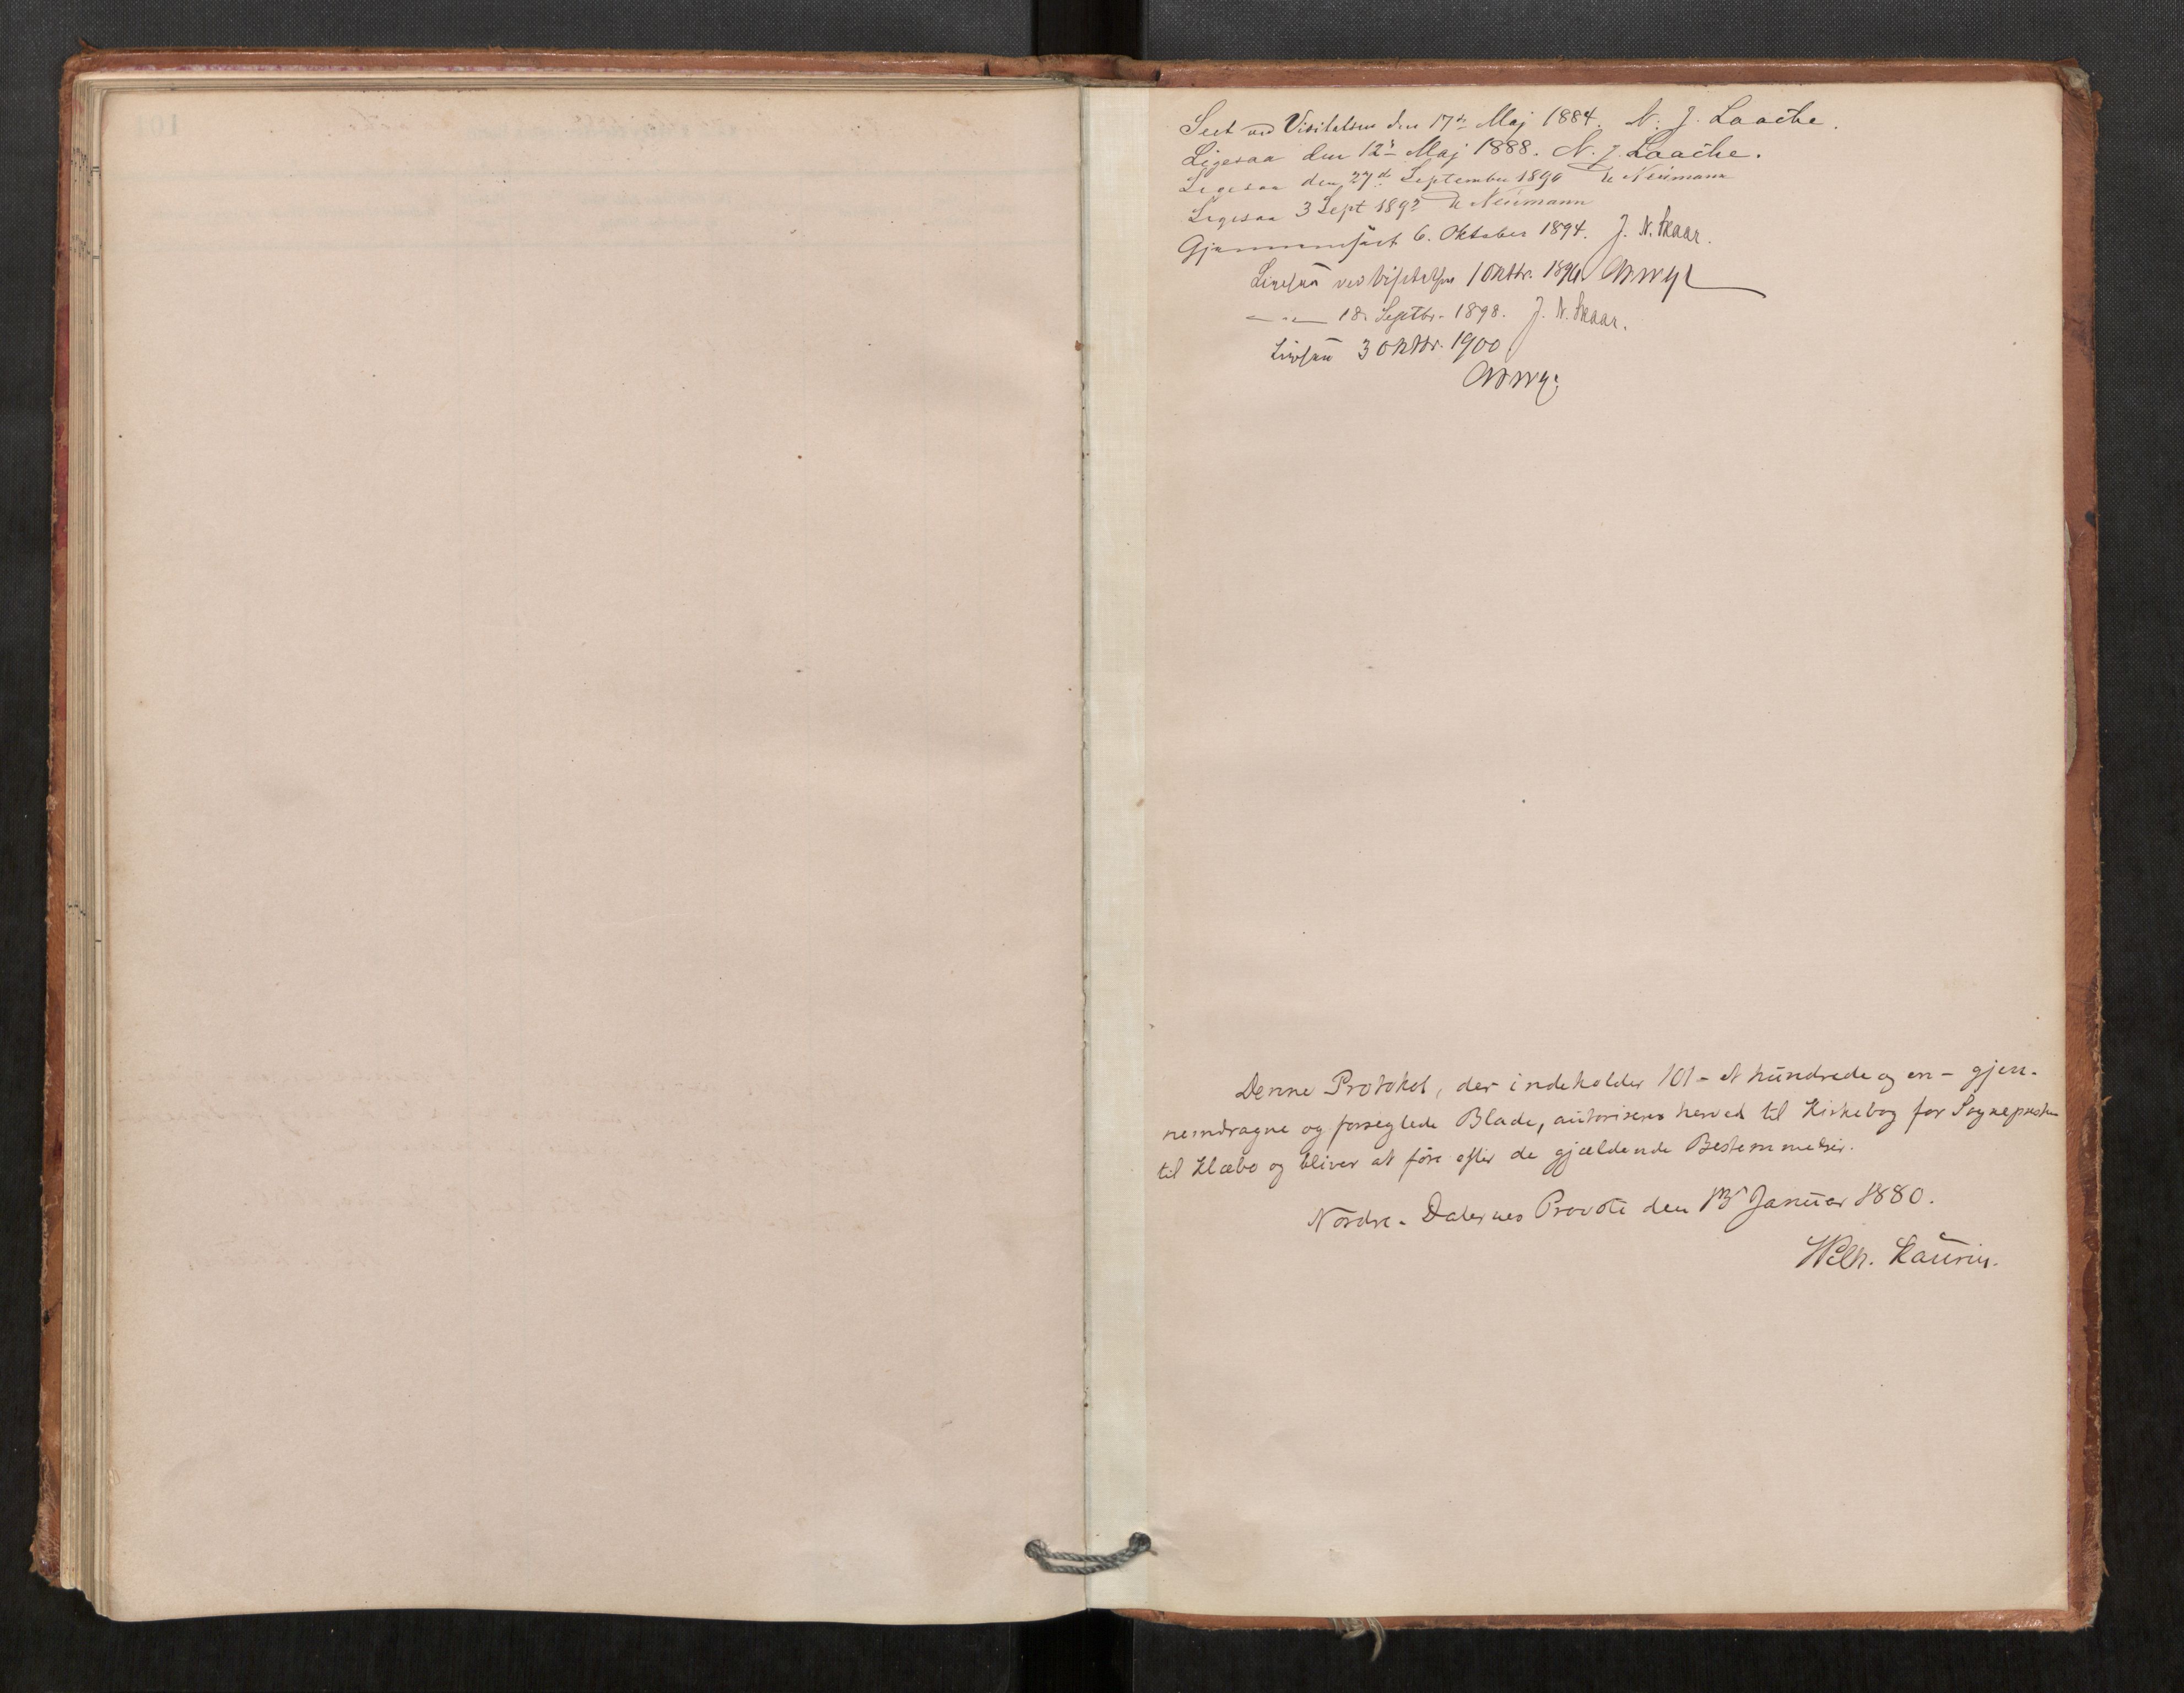 Seet ved Visitatsen den 17de Maj 1884. N. J. Laache.
Ligesaa den 12te Maj 1888. N. J. Laache.
Ligesaa den 27de September 1890 Neumann
Ligesaa 3 Sept 1892 Neumann
Gjennemseet 6. Oktober 1894. J. N. Skaar.
Ligesaa ved Visitatsen 1 Oktbr. 1896
18 Septbr. 1898. J. N. Skaar.
Ligesaa 3 Oktbr. 1900
Denne Protokol, der indeholder 101 - et hundrede og en - gjen-
nemdragne og forseglede Blade, autoriseres herved til Kirkebog for Sognepresten
til Klæbo og bliver at føre efter de gjældende Bestemmelser.
Nordre-Dalernes Provsti den Januar 1880.
Wilh. Laurin.